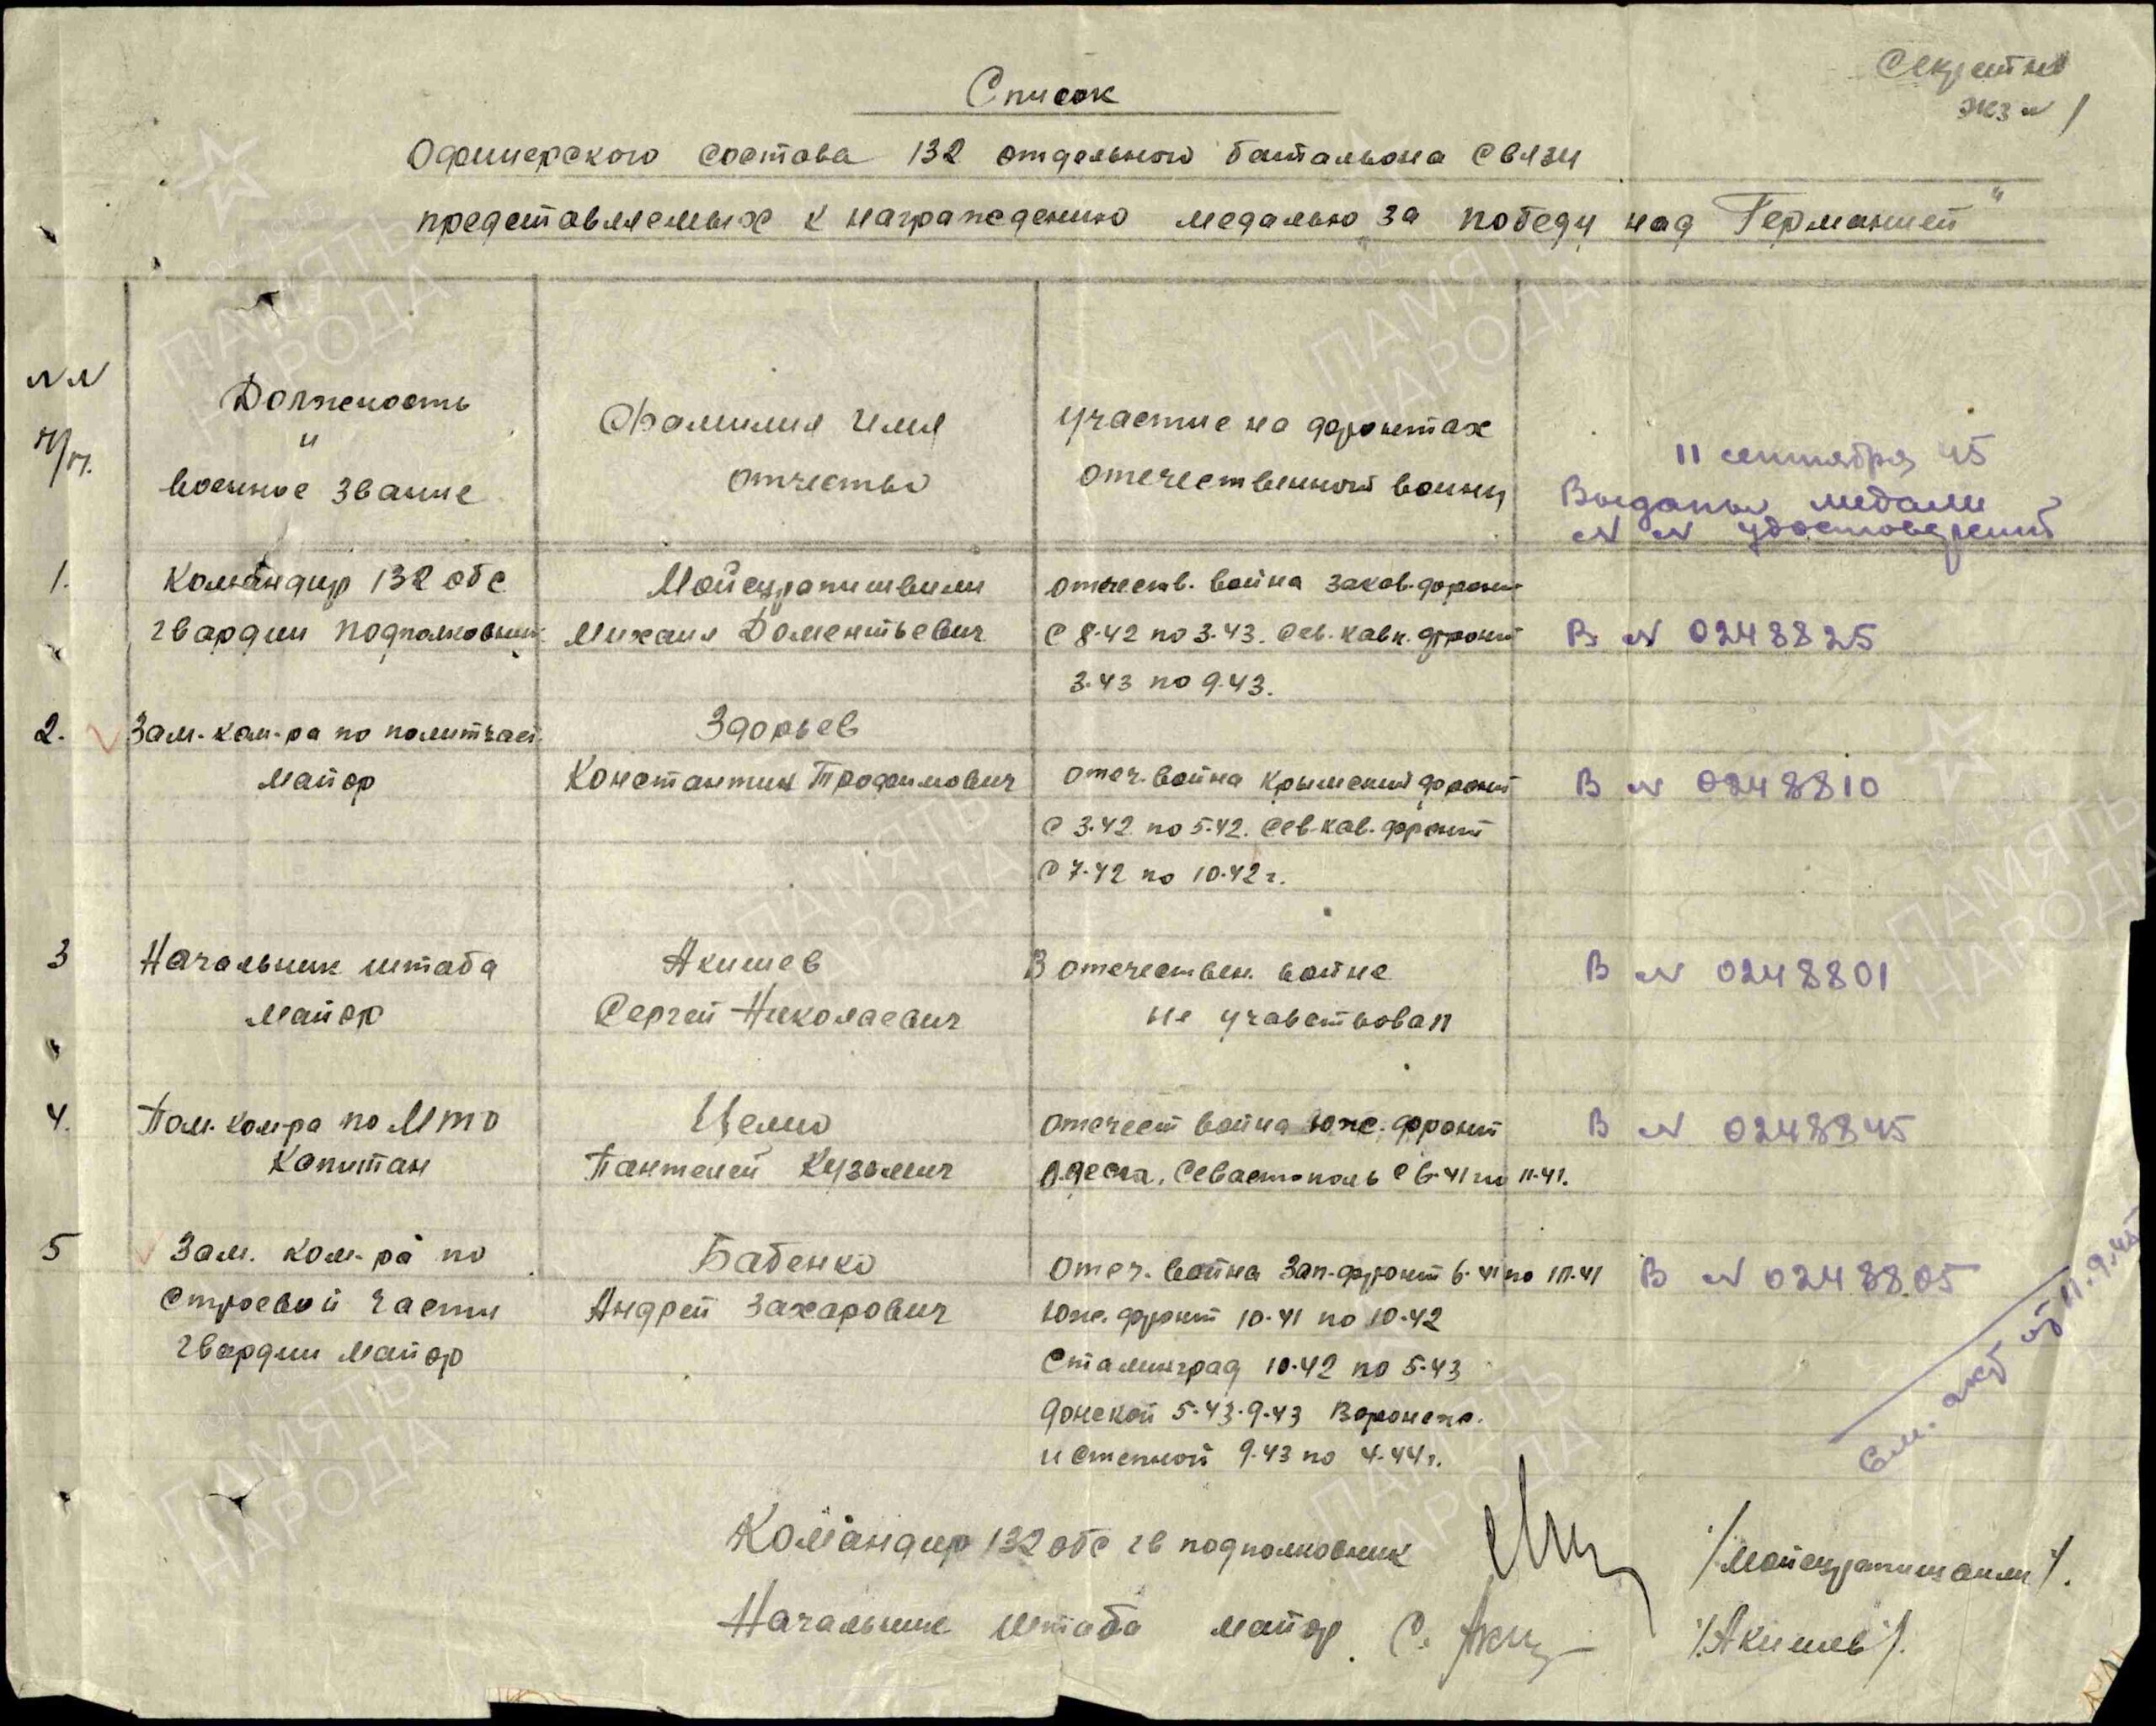 Секретно
экз № 1
Список
Офицерского состава 132 отдельного батальона связи
представляемых к награждению медалью „За победу над Германией"
№№
п/п.
Должность
и
военное звание
Фамилия Имя
отчество
участие на фронтах
отечественной войны
11 сентября 45
Выданы медали
№ № удостоверений
1.
Командир 132 обс
гвардии подполковник
Мойсурапишвили
Михаил Доментьевич
отечеств. война Закав. фронт
с 8.42 по 3.43. Сев. кавк. фронт
3.43 по 9.43.
В № 0248825
2.
Зам. ком-ра по политчаст.
майор
Здорьев
Константин Трофимович
отеч. война Крымский фронт
с 3.42 по 5.42. Сев-кав. фронт
с 7.42 по 10.42 г.
В № 0248810
3
Начальник штаба
майор
Акишев
Сергей Николаевич
В отечествен. войне
не учавствовал
В № 0248801
4.
Пом. ком-ра по МТО
Капитан
Цемо
Пантелей Кузьмич
отечест война Юж. фронт
Одесса, Севастополь с 6.41 по 11.41.
В № 0248845
5
Зам. ком-ра по
строевой части
гвардии майор
Бабенко
Андрей Захарович
отеч. война Зап-фронт 6.41 по 10.41
Юж. фронт 10.41 по 10.42
Сталинград 10.42 по 5.43
Донской 5.43.9.43 Воронеж.
и степной 9.43 по 4.44 г.
В № 0248805
См. акт от 11.9.45
Командир 132 обс гв подполковник
/Мойсурапишвили/.
Начальник штаба майор С. Аки
/Акишев/.
ПАМЯТЬ
НАРОДА
ПАМЯТЬ
НАРОДА
ПАМЯТЬ
НАРОДА
ПАМЯТЬ
НАРОДА
ПАМЯТЬ
НАРОДА
ПАМЯТЬ
НАРОДА